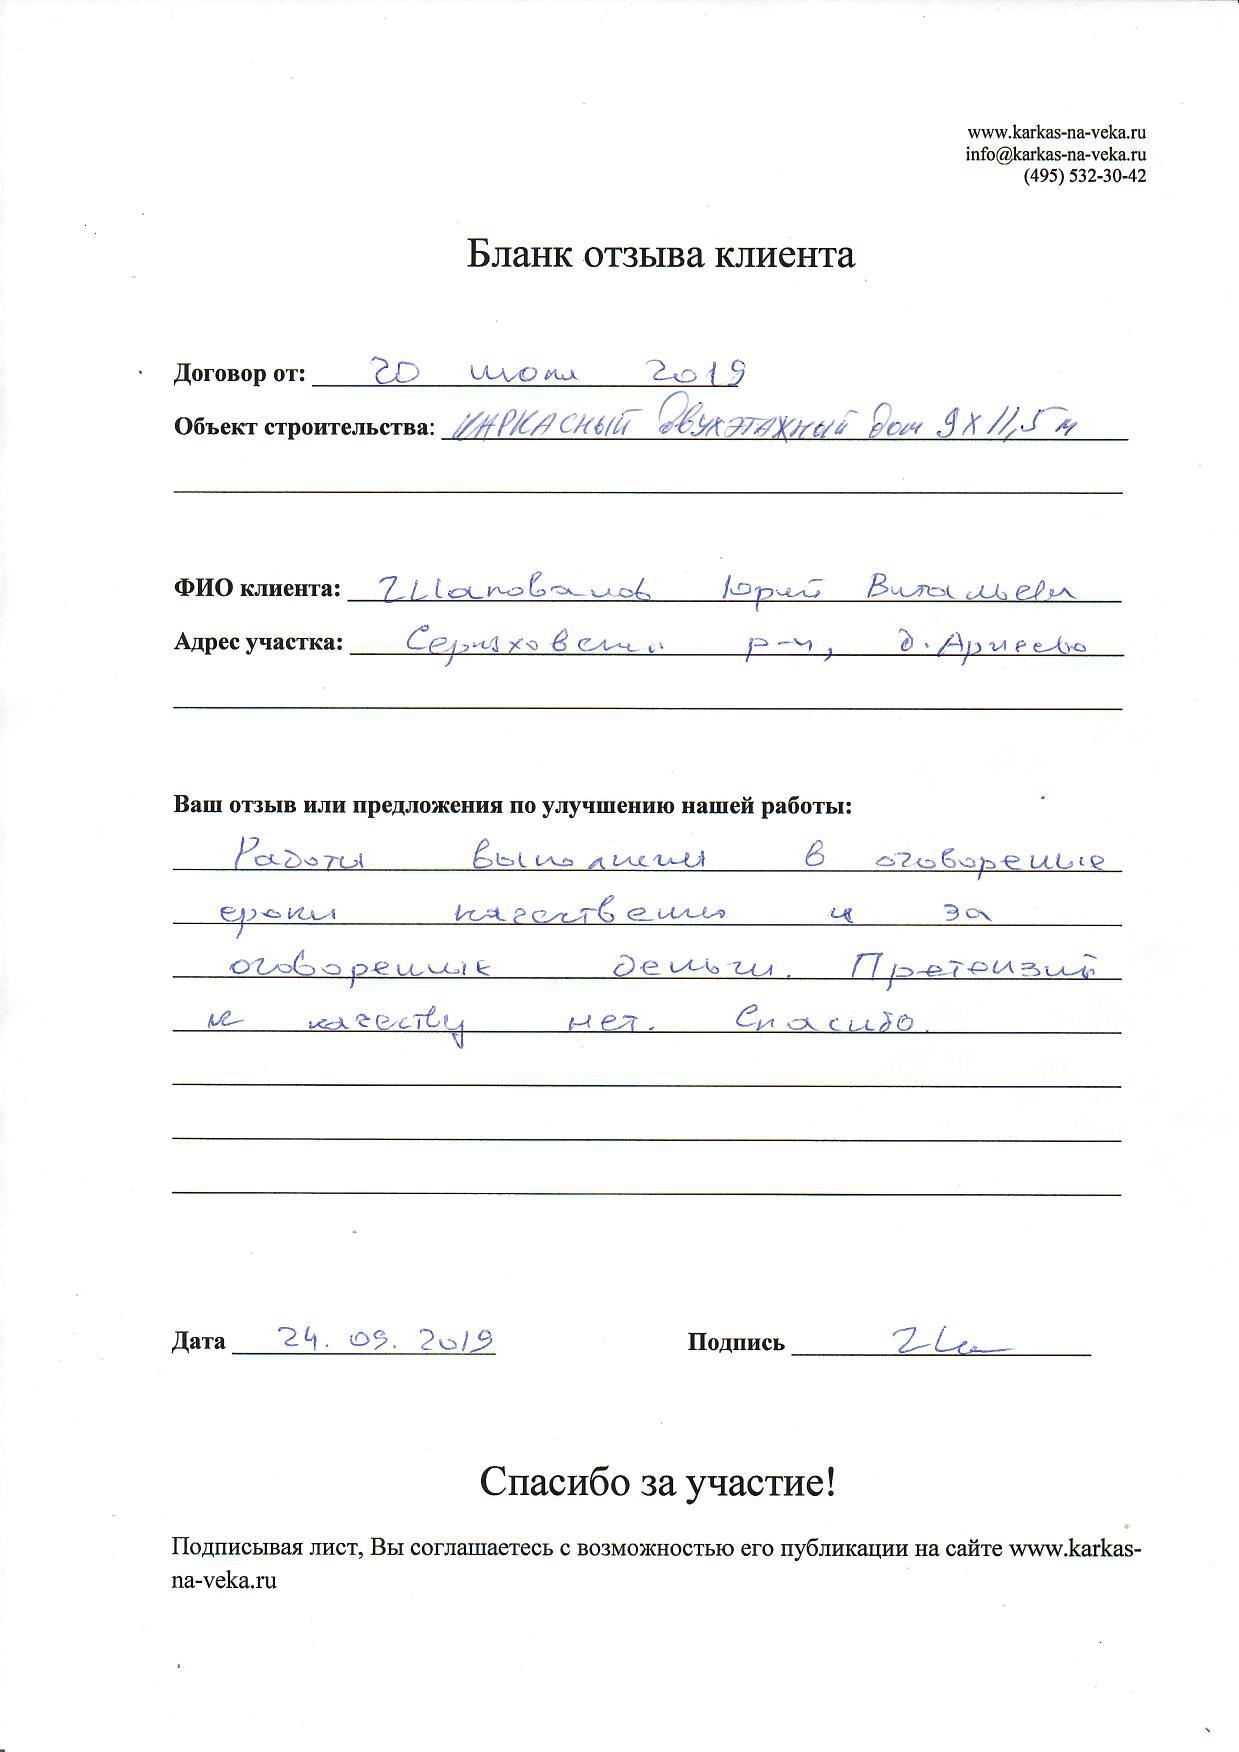 www.karkas-na-veka.ru
info@karkas-na-veka.ru
(495) 532-30-42
Бланк отзыва клиента
Договор от: 20 июля 2019
Объект строительства: КАРКАСНЫЙ ДВУХЭТАЖНЫЙ дом 9 х 11,5 м
ФИО клиента: Шаповалов Юрий Витальевич
Адрес участка: Серпуховский р-н, д.
Ваш отзыв или предложения по улучшению нашей работы:
Работы выполнены в оговоренные
сроки качественно и за
оговоренные деньги. Претензий
к качеству нет. Спасибо.
Дата 24. 09. 2019 Подпись
Спасибо за участие!
Подписывая лист, Вы соглашаетесь с возможностью его публикации на сайте www.karkas-
na-veka.ru